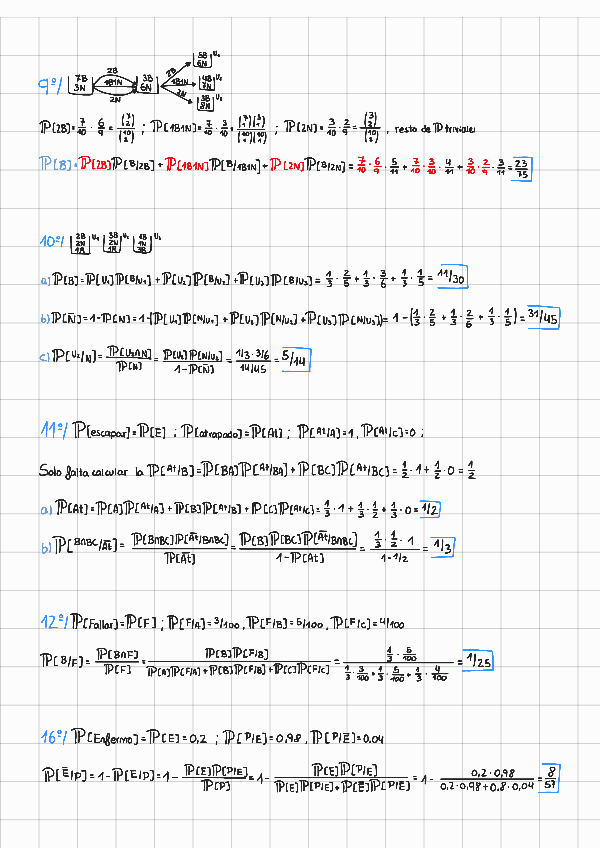 9º/ 7B 3N 2B 1B1N 2N 3B 6N 2B 1N 2N 5B 6N U₁ 4B 7N U₂ 3B 8N U₃
ℙ[2B]=7/10·6/9=(7 2)/(10 2) ; ℙ[1B1N]=7/10·3/10=(7 1)(3 1)/(10 1)(10 1) ; ℙ[2N]=3/10·2/9=(3 2)/(10 2) , resto de ℙ triviales
ℙ[B]=ℙ[2B]ℙ[B/2B]+ℙ[1B1N]ℙ[B/1B1N]+ℙ[2N]ℙ[B/2N]=7/10·6/9·5/11+7/10·3/10·4/11+3/10·2/9·3/11=23/75
10º/ 2B 2N 1R U₁ 3B 2N 1R U₂ 1B 1N 3R U₃
a) ℙ[B]=ℙ[U₁]ℙ[B/U₁]+ℙ[U₂]ℙ[B/U₂]+ℙ[U₃]ℙ[B/U₃]=1/3·2/5+1/3·3/6+1/3·1/5=11/30
b) ℙ[N̄]=1-ℙ[N]=1-(ℙ[U₁]ℙ[N/U₁]+ℙ[U₂]ℙ[N/U₂]+ℙ[U₃]ℙ[N/U₃])=1-(1/3·2/5+1/3·2/6+1/3·1/5)=31/45
c) ℙ[U₂/N]=ℙ[U₂∩N]/ℙ[N]=ℙ[U₂]ℙ[N/U₂]/1-ℙ[N̄]=1/3·2/6/14/45=5/14
11º/ ℙ[escapar]=ℙ[E] ; ℙ[atrapado]=ℙ[At] ; ℙ[At/A]=1, ℙ[At/C]=0 ;
Solo falta calcular la ℙ[At/B]=ℙ[BA]ℙ[At/BA]+ℙ[BC]ℙ[At/BC]=1/2·1+1/2·0=1/2
a) ℙ[At]=ℙ[A]ℙ[At/A]+ℙ[B]ℙ[At/B]+ℙ[C]ℙ[At/C]=1/3·1+1/3·1/2+1/3·0=1/2
b) ℙ[B∩BC/Āt]=ℙ[B∩BC]ℙ[Āt/B∩BC]/ℙ[Āt]=ℙ[B]ℙ[BC]ℙ[Āt/B∩BC]/1-ℙ[At]=1/3·1/2·1/1-1/2=1/3
12º/ ℙ[Fallar]=ℙ[F] ; ℙ[F/A]=3/100, ℙ[F/B]=5/100, ℙ[F/C]=4/100
ℙ[B/F]=ℙ[B∩F]/ℙ[F]=ℙ[B]ℙ[F/B]/ℙ[A]ℙ[F/A]+ℙ[B]ℙ[F/B]+ℙ[C]ℙ[F/C]=1/3·5/100/1/3·3/100+1/3·5/100+1/3·4/100=1/25
16º/ ℙ[Enfermo]=ℙ[E]=0,2 ; ℙ[P/E]=0,98, ℙ[P/Ē]=0.04
ℙ[Ē/P]=1-ℙ[E/P]=1-ℙ[E]ℙ[P/E]/ℙ[P]=1-ℙ[E]ℙ[P/E]/ℙ[E]ℙ[P/E]+ℙ[Ē]ℙ[P/Ē]=1-0,2·0,98/0,2·0,98+0.8·0,04=8/57